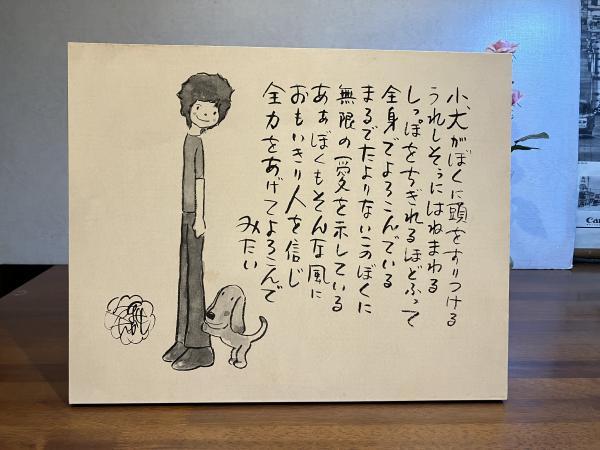 小犬がぼくに頭をすりつける
うれしそうにはねまわる
しっぽをちぎれるほどふって
全身でよろこんでいる
まるでたよりないこのぼくに
無限の愛を示している
あぁぼくもそんな風に
おもいきり人を信じ
全力をあげてよろこんで
みたい
Can